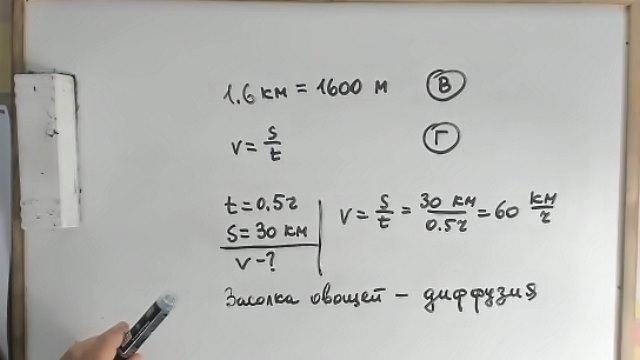 1.6 км = 1600 м (В)
v = s/t (Г)
t = 0.5 ч
S = 30 км
v = s/t = 30 км/0.5 ч = 60 км/ч
v - ?
Засолка овощей – диффузия